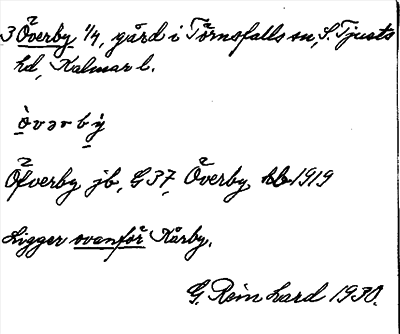 3 Överby 1/4, gård i Törnsfalls sn, S. Tjusts
hd, Kalmar l.
ò̱vərbỳ̱
Öfverby jb, G 37, Överby kb 1919
Ligger ovanför Kårby.
G. Reinhard 1930.